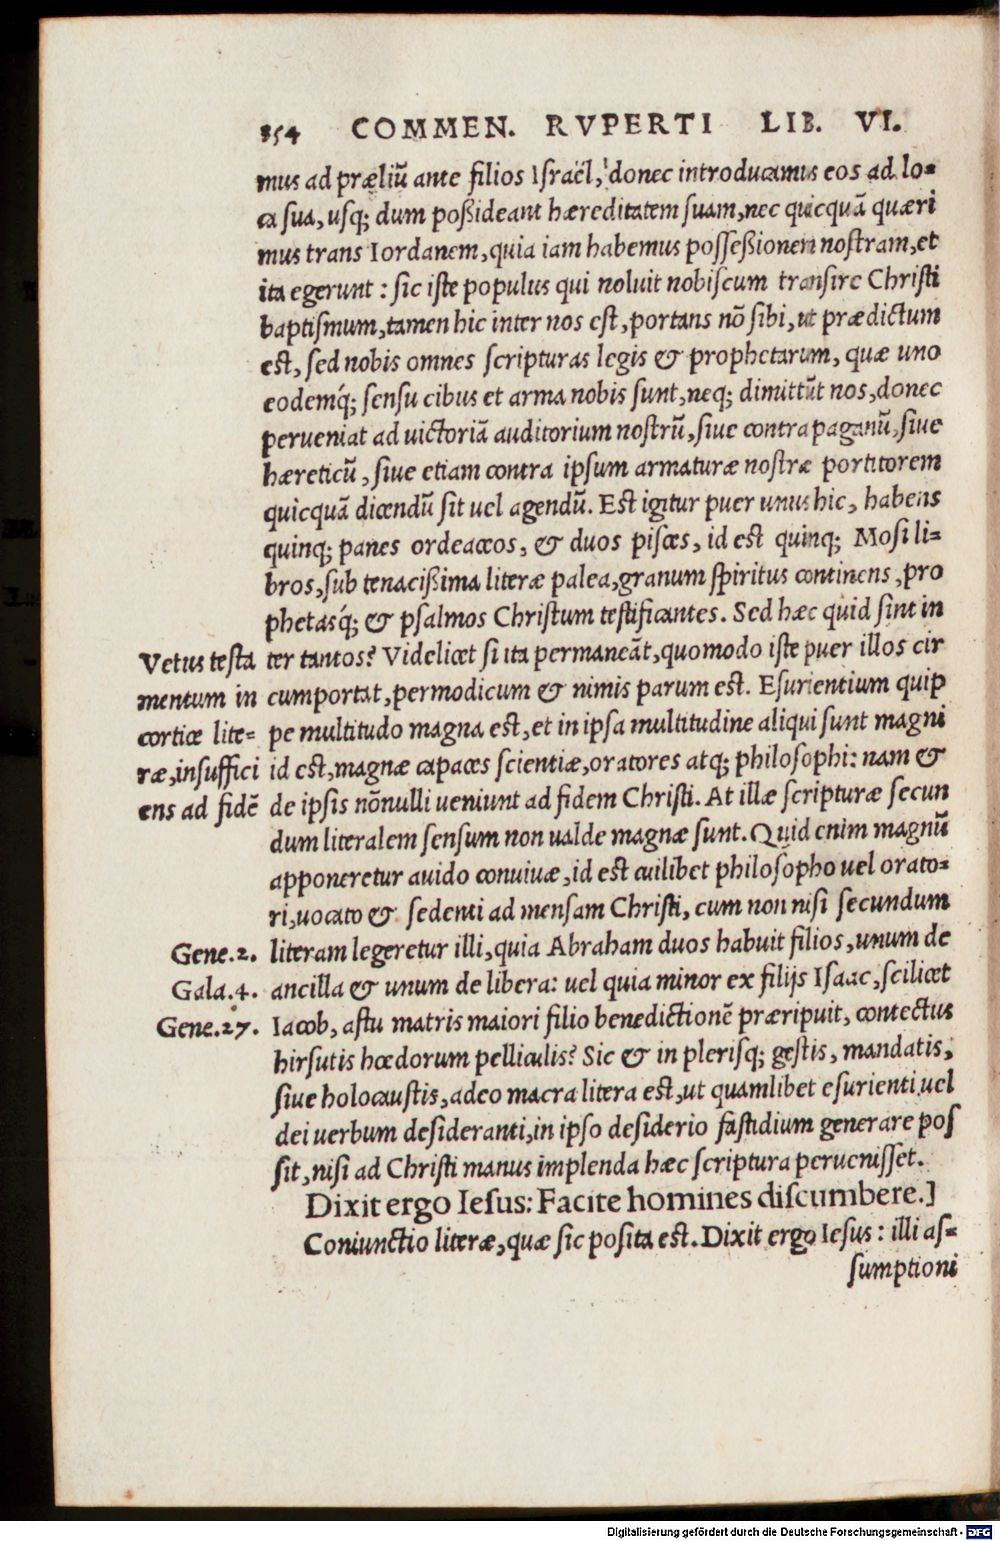 354 COMMEN. RVPERTI LIB. VI.
mus ad præliũ ante filios Iſraël, donec introducamus eos ad lo-
ca ſua, uſq; dum poßideant hæreditatem ſuam, nec quicquã quæri
mus trans Iordanem, quia iam habemus poſſeßionem noſtram, et
ita egerunt : ſic iſte populus qui noluit nobiſcum tranſire Chriſti
baptiſmum, tamen hic inter nos eſt, portans nõ ſibi, ut prædictum
eſt, ſed nobis omnes ſcripturas legis & prophetarum, quæ uno
eodemq́; ſenſu cibus et arma nobis ſunt, neq; dimittũt nos, donec
perueniat ad uictoriã auditorium noſtrũ, ſiue contra paganũ, ſiue
hæreticũ, ſiue etiam contra ipſum armaturæ noſtræ portitorem
quicquã dicendũ ſit uel agendũ. Eſt igitur puer unus hic, habens
quinq; panes ordeaceos, & duos piſces, id eſt quinq; Moſi li-
bros, ſub tenacißima literæ palea, granum ſpiritus continens, pro
phetasq́; & pſalmos Chriſtum teſtificantes. Sed hæc quid ſint in
Vetus teſta
mentum in
cortice lite-
ræ, inſuffici
ens ad fidẽ
ter tantos? Videlicet ſi ita permaneãt, quomodo iſte puer illos cir
cumportat, permodicum & nimis parum eſt. Eſurientium quip
pe multitudo magna eſt, et in ipſa multitudine aliqui ſunt magni
id eſt, magnæ capaces ſcientiæ, oratores atq; philoſophi: nam &
de ipſis nõnulli ueniunt ad fidem Chriſti. At illæ ſcripturæ ſecun
dum literalem ſenſum non ualde magnæ ſunt. Quid enim magnũ
apponeretur auido conuiuæ, id eſt cuilibet philoſopho uel orato-
ri, uocato & ſedenti ad menſam Chriſti, cum non niſi ſecundum
Gene.2.
Gala.4.
Gene.27.
literam legeretur illi, quia Abraham duos habuit filios, unum de
ancilla & unum de libera: uel quia minor ex filijs Iſaac, ſcilicet
Iacob, aſtu matris maiori filio benedictionẽ præripuit, contectus
hirſutis hœdorum pelliculis? Sic & in pleriſq; geſtis, mandatis,
ſiue holocauſtis, adeo macra litera eſt, ut quamlibet eſurienti uel
dei uerbum deſideranti, in ipſo deſiderio faſtidium generare poſ
ſit, niſi ad Chriſti manus implenda hæc ſcriptura perueniſſet.
Dixit ergo Ieſus: Facite homines diſcumbere.]
Coniunctio literæ, quæ ſic poſita eſt. Dixit ergo Ieſus : illi aſ-
ſumptioni
Digitalisierung gefördert durch die Deutsche Forschungsgemeinschaft - DFG